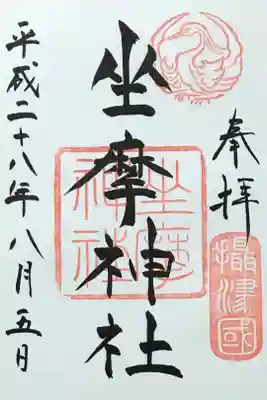 奉拝
攝津國
坐摩神社
坐摩
神社
平成二十八年八月五日